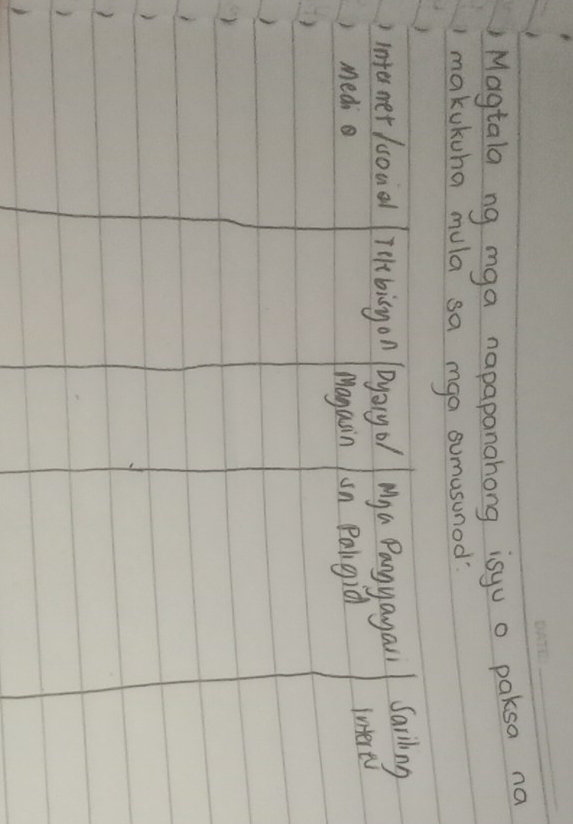 DATE:
Magtala ng mga napapanahong isyu o paksa na
makukuha mula sa mga sumusunod:
Internet/social | Telebisyon | Dyaryo/ | Mga Pangyayari | Sariling
Media Magasin sa Paligid